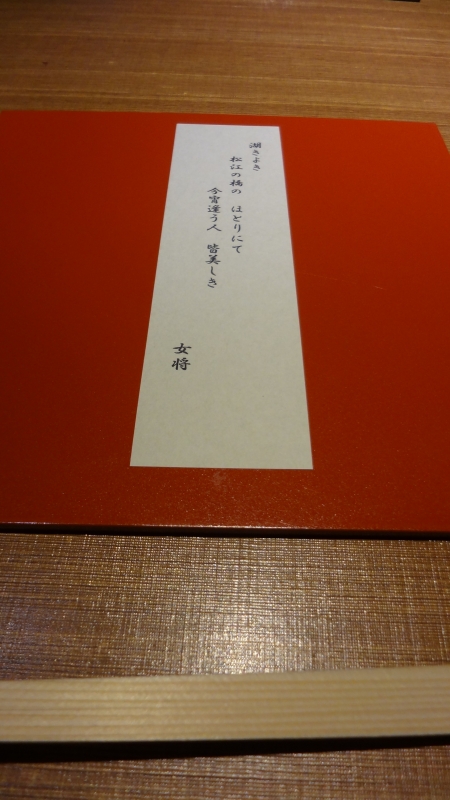 湖きよき
松江の橋の　ほとりにて
今宵逢う人　皆美しき
女将